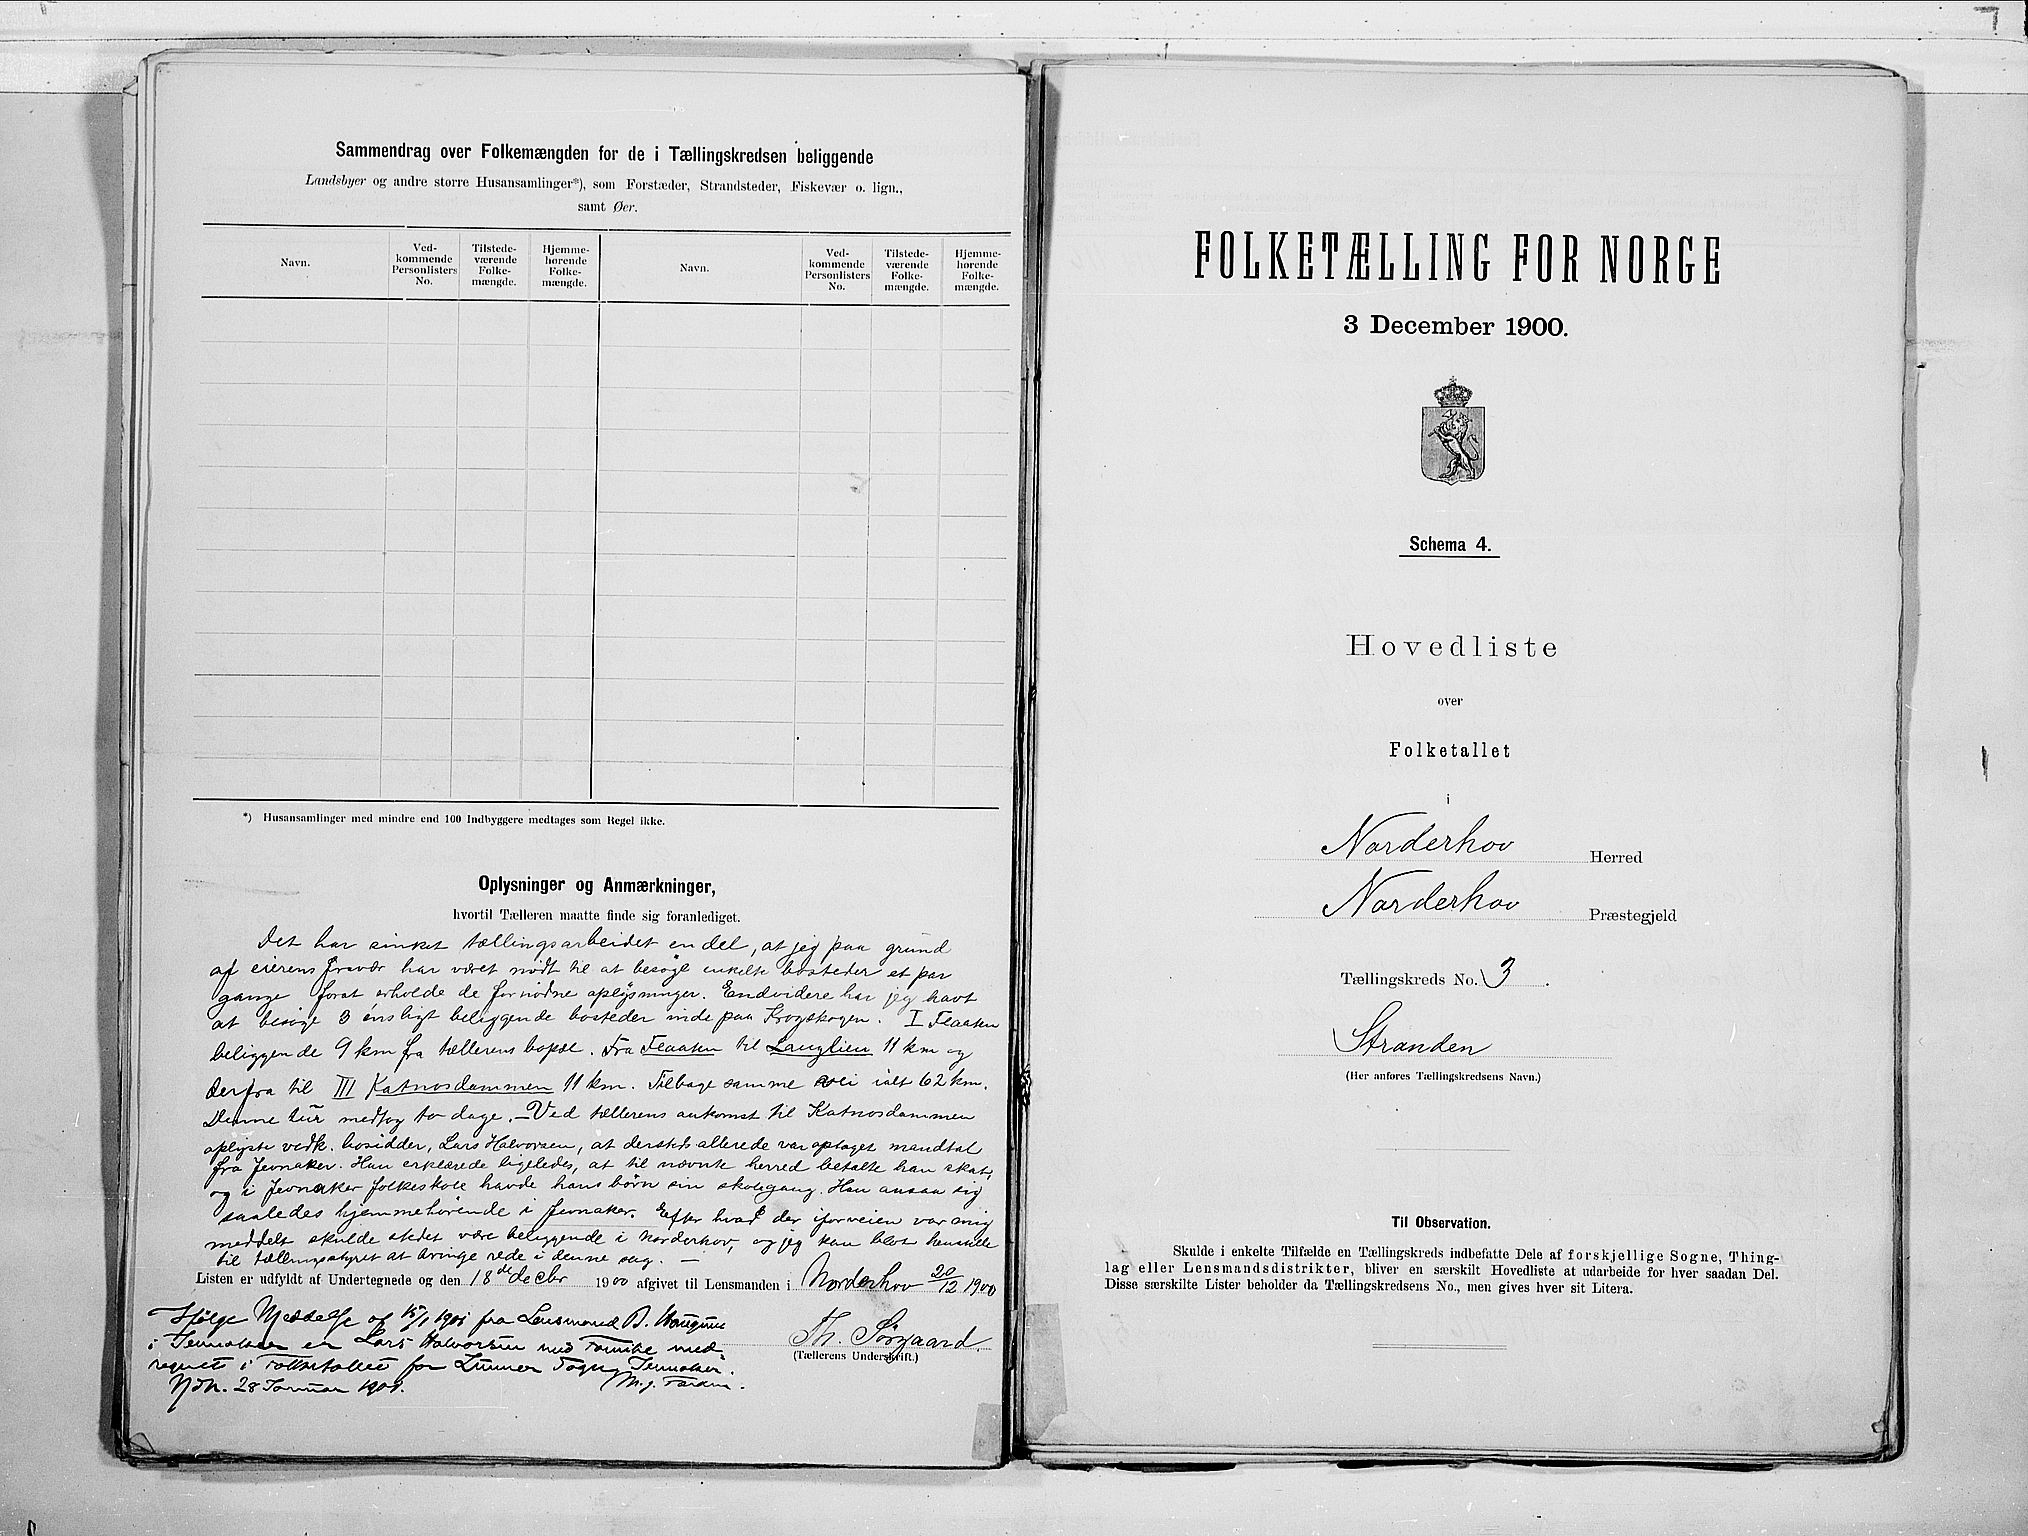 Sammendrag over Folkemængden for de i Tællingskredsen beliggende
Landsbyer og andre større Husansamlinger*), som Forstæder, Strandsteder, Fiskevær o. lign.,
samt Øer.
Navn.
Ved-
kommende
Personlisters
No.
Tilstede-
værende
Folke-
mængde.
Hjemme-
hørende
Folke-
mængde.
Navn.
Ved-
kommende
Personlisters
No.
Tilstede-
værende
Folke-
mængde.
Hjemme-
hørende
Folke-
mængde.
*) Husansamlinger med mindre end 100 Indbyggere medtages som Regel ikke.
Oplysninger og Anmærkninger,
hvortil Tælleren maatte finde sig foranlediget.
Det har sinket tællingsarbeidet en del, at jeg paa grund
af eierens fravær har været nødt til at besøge enkelte bosteder et par
gange forat erholde de fornødne oplysninger. Endvidere har jeg havt
at besøge 3 ensligt beliggende bosteder inde paa Krogskogen. I Flaaten
beliggende 9 km fra tællerens bopæl. Fra Flaaten til Langlien 11 km og
derfra til III Katnosdammen 11 km. Tilbage samme vei ialt 62 km.
Denne tur medtog to dage. – Ved tællerens ankomst til Katnosdammen
oplyste vedk. bosidder, Lars Halvorsen, at dersteds allerede var optaget mandtal
fra Jevnaker. Han erklærede ligeledes, at til nævnte herred betalte han skat,
og i Jevnaker folkeskole havde hans børn sin skolegang. Han ansaa sig
saaledes hjemmehørende i Jevnaker. Efter hvad der iforveien var mig
meddelt skulde stedet være beliggende i Norderhov, og jeg kan blot henstille
til tællingsstyret at bringe rede i denne sag. –
Listen er udfyldt af Undertegnede og den 18de decbr 1900 afgivet til Lensmanden i Norderhov 20/12 1900
Ifølge Meddelse af 15/1 1901 fra Lensmand B.
i Jevnaker er Lars Halvorsen med Familie med-
regnet i Folketallet for Lunner Sogn, Jevnaker.
Ndh. 28 Januar 1901.
Th. Sørgaard.
(Tællerens Underskrift.)
FOLKETÆLLING FOR NORGE
3 December 1900.
Schema 4.
Hovedliste
over
Folketallet
i
Norderhov Herred
Norderhov Præstegjeld
Tællingskreds No. 3.
Stranden
(Her anføres Tællingskredsens Navn.)
Til Observation.
Skulde i enkelte Tilfælde en Tællingskreds indbefatte Dele af forskjellige Sogne, Thing-
lag eller Lensmandsdistrikter, bliver en særskilt Hovedliste at udarbeide for hver saadan Del.
Disse særskilte Lister beholder da Tællingskredsens No., men gives hver sit Litera.